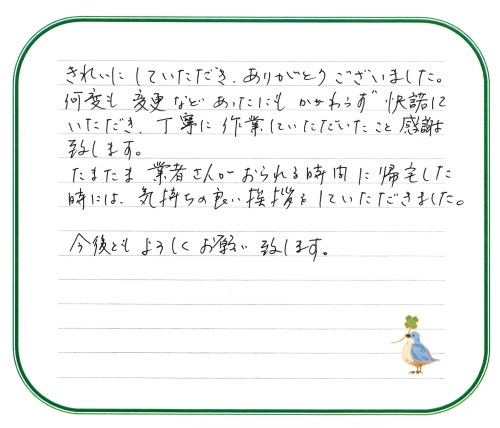 きれいにしていただき、ありがとうございました。
何度も変更などあったにもかかわらず快諾して
いただき、丁寧に作業していただいたこと感謝
致します。
たまたま業者さんがおられる時間に帰宅した
時には、気持ちの良い挨拶をしていただきました。
今後ともよろしくお願い致します。